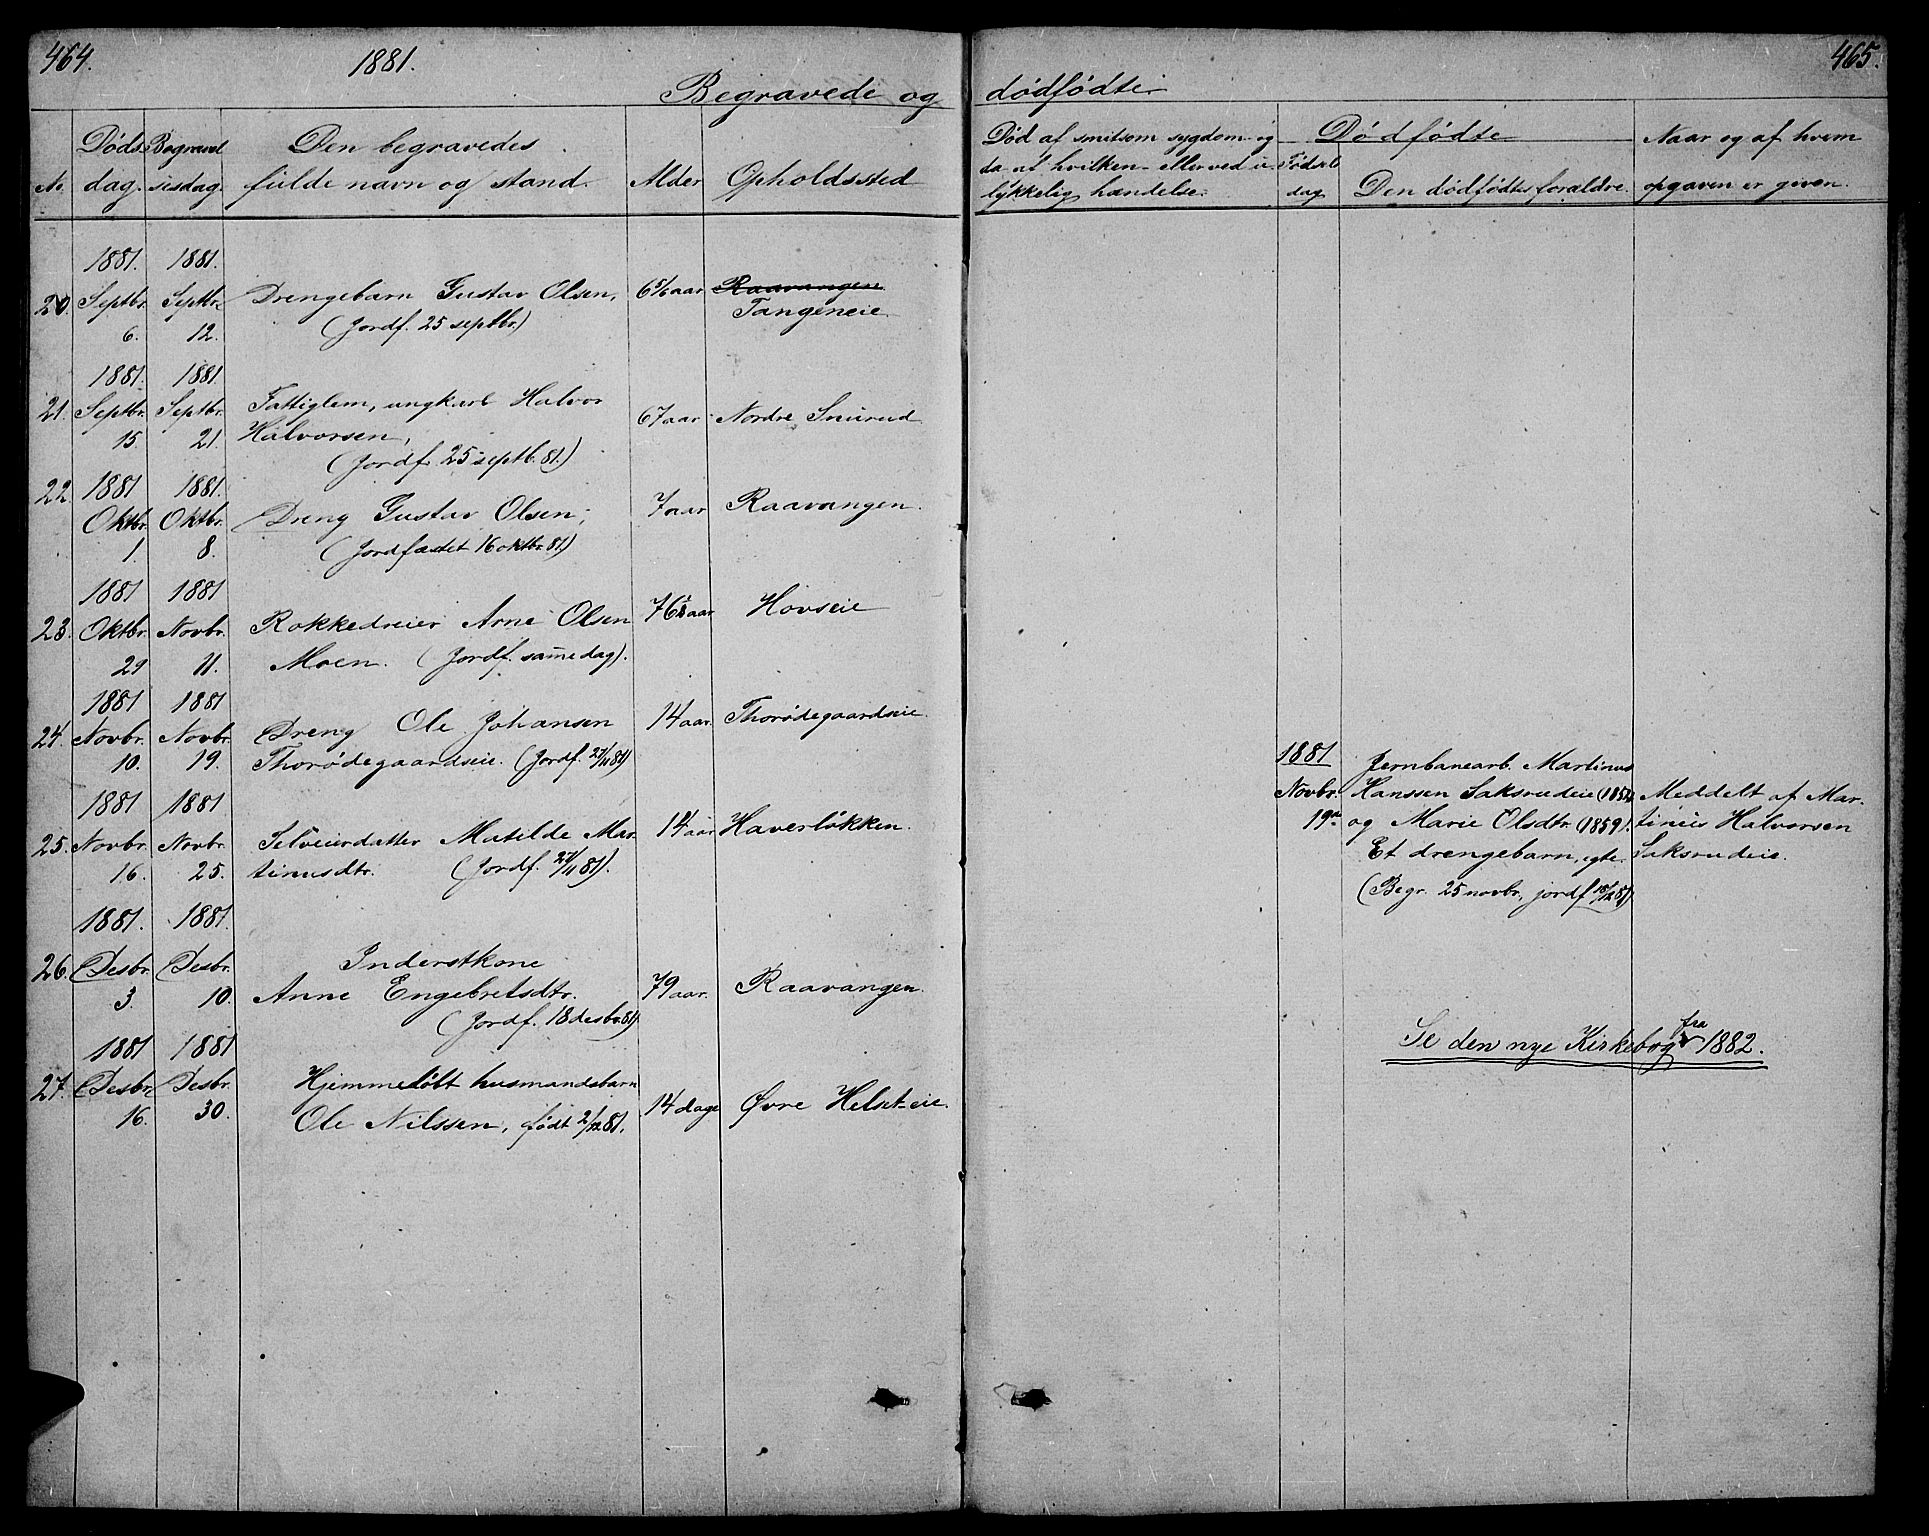 464.
1881.
Begravede og
No.
Dødsdag.
Begravelsesdag.
Den begravedes
fulde navn og stand.
Alder
Opholdssted
1881. 1881.
20. Septbr. Septbr. Drengebarn Gustav Olsen, 6 5/6 aar Raavangen
6. 12. (Jordf. 25 septbr.) Tangeneie.
1881. 1881.
21. Septbr. Septbr. Fattiglem, ungkarl Halvor 67 aar Nordre Snurud
15. 21. Halvorsen,
(Jordf. 25 septb. 81.)
22. 1881 1881.
Oktbr. Oktbr. Dreng Gustav Olsen, 7 aar Raavangen.
1. 8. (Jordfæstet 16 oktbr. 81)
1881 1881
23. Oktbr. Novbr. Rokkedreier Arne Olsen 76 aar Hovseie
29 11. Moen. (Jordf. samme dag).
1881 1881
24. Novbr. Novbr. Dreng Ole Johansen 14 aar. Thorødegaardseie.
10. 19. Thorødegaardseie. (Jordf. 27/11 81)
1881 1881
25. Novbr. Novbr. Selveierdatter Matilde Mar- 14 aar Haverløkken.
16. 25. tinusdtr. (Jordf. 27/11 81).
1881. 1881.
26. Desbr. Desbr. Inderstkone
3. 10. Anne Engebretsdtr. 79 aar. Raavangen.
(Jordf. 18 desbr. 81)
1881 1881
27. Desbr. Desbr. Hjemmedøbt husmandsbarn
16. 30. Ole Nilssen, født 2/12 81. 14 dage Øvre Helset-eie.
465.
dødfødte
Død af smitsom sygdom og
da af hvilken eller ved u-
lykkelig hændelse.
Dødfødte
Fødsels
dag
Den dødfødtes forældre.
Naar og af hvem
opgaven er given.
1881 Jernbanearb. Martinus
Novbr. Hanssen Saksrudeie Meddelt af Mar-
19de og Marie Olsdtr. (1859). tinius Halvorsen
Et drengebarn, egte. Saksrudeie.
(Begr. 25 novbr., jordf. 18/12 81)
Se den nye Kirkebog fra 1882.